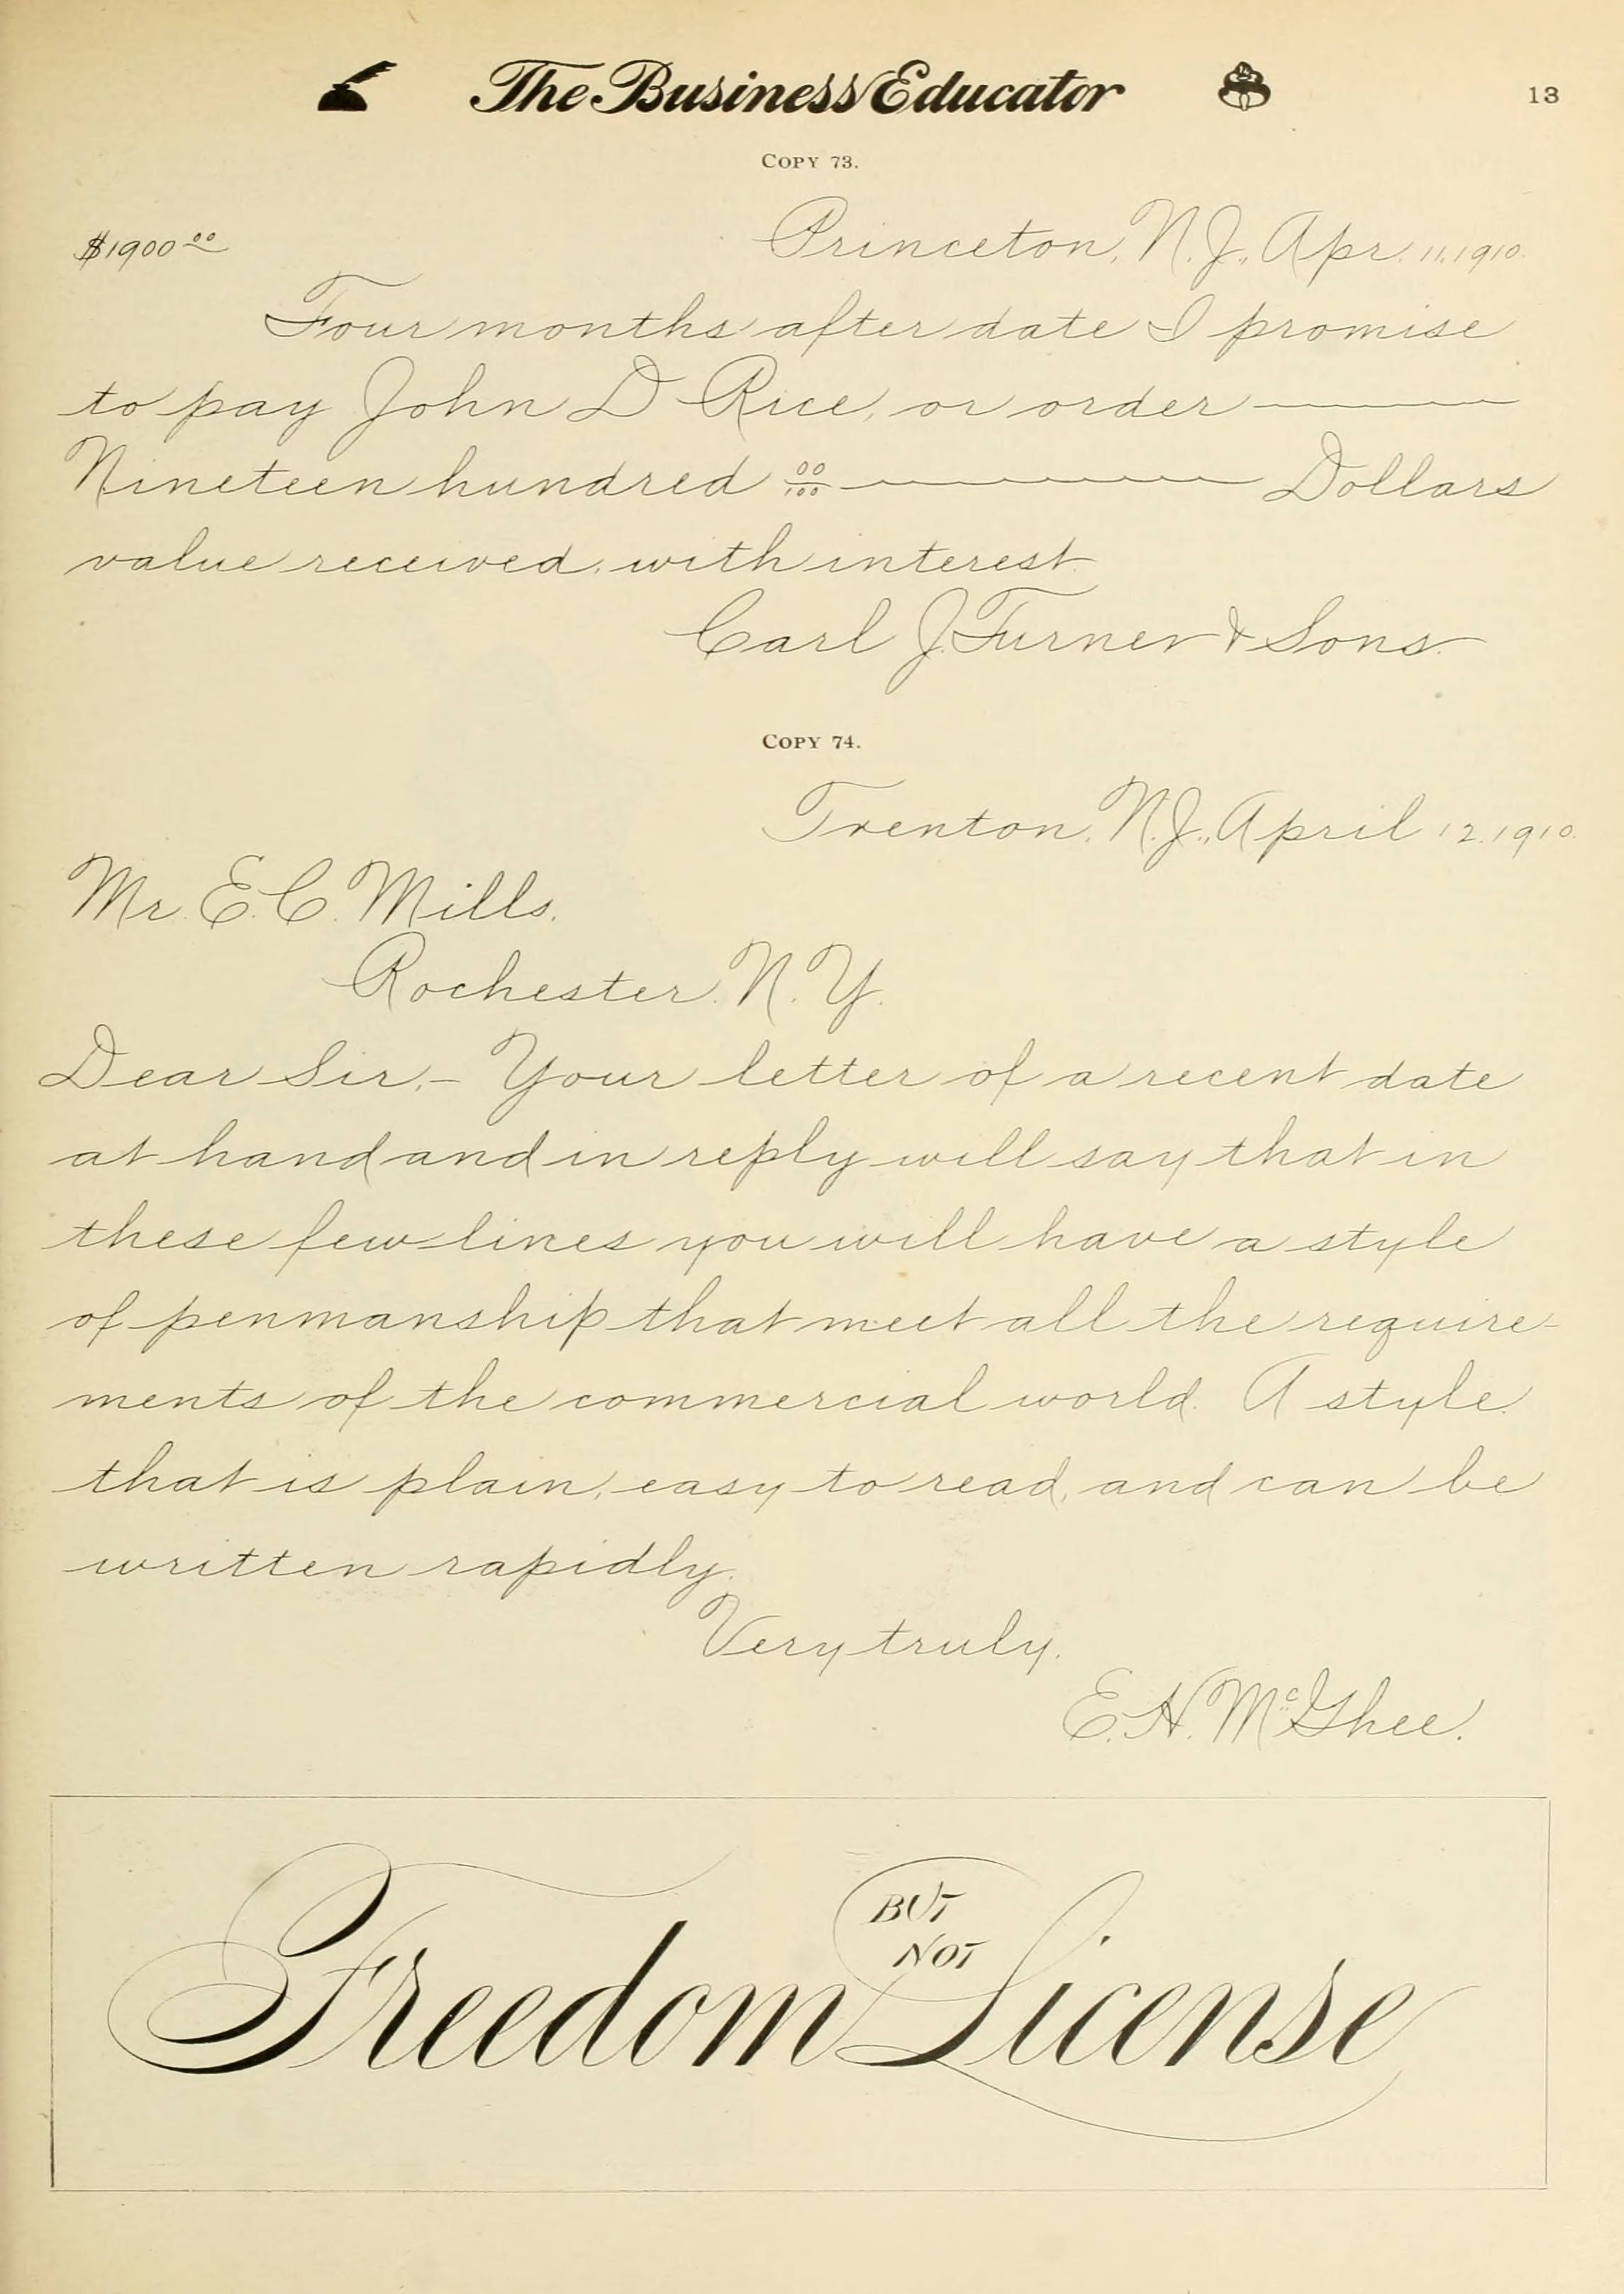 The Business Educator 13
COPY 73.
$1900 00 Princeton, N.J., Apr. 11, 1910.
Four months after date I promise
to pay John D Rice, or order
Nineteen hundred 00/100 Dollars
value received, with interest.
Carl J. Turner & Sons.
COPY 74.
Trenton, N.J., April 12, 1910.
Mr. E. C. Mills.
Rochester. N. Y.
Dear Sir,- Your letter of a recent date
at hand and in reply will say that in
these few lines you will have a style
of penmanship that meet all the require-
ments of the commercial world. A style
that is plain, easy to read, and can be
written rapidly.
Very truly.
E. H. McGhee.
Freedom BUT NOT License